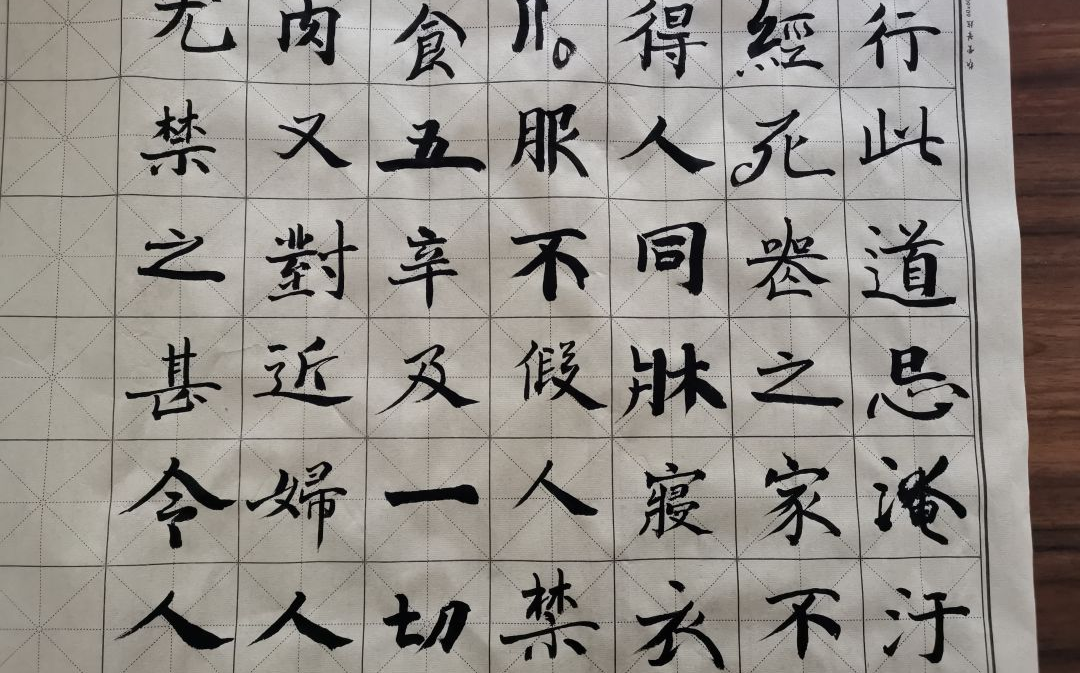 行此道忌淹汙
經死喪之家不
得人同牀寢衣
服不假人禁
食五辛及一切
肉又對近婦人
尤禁之甚令人